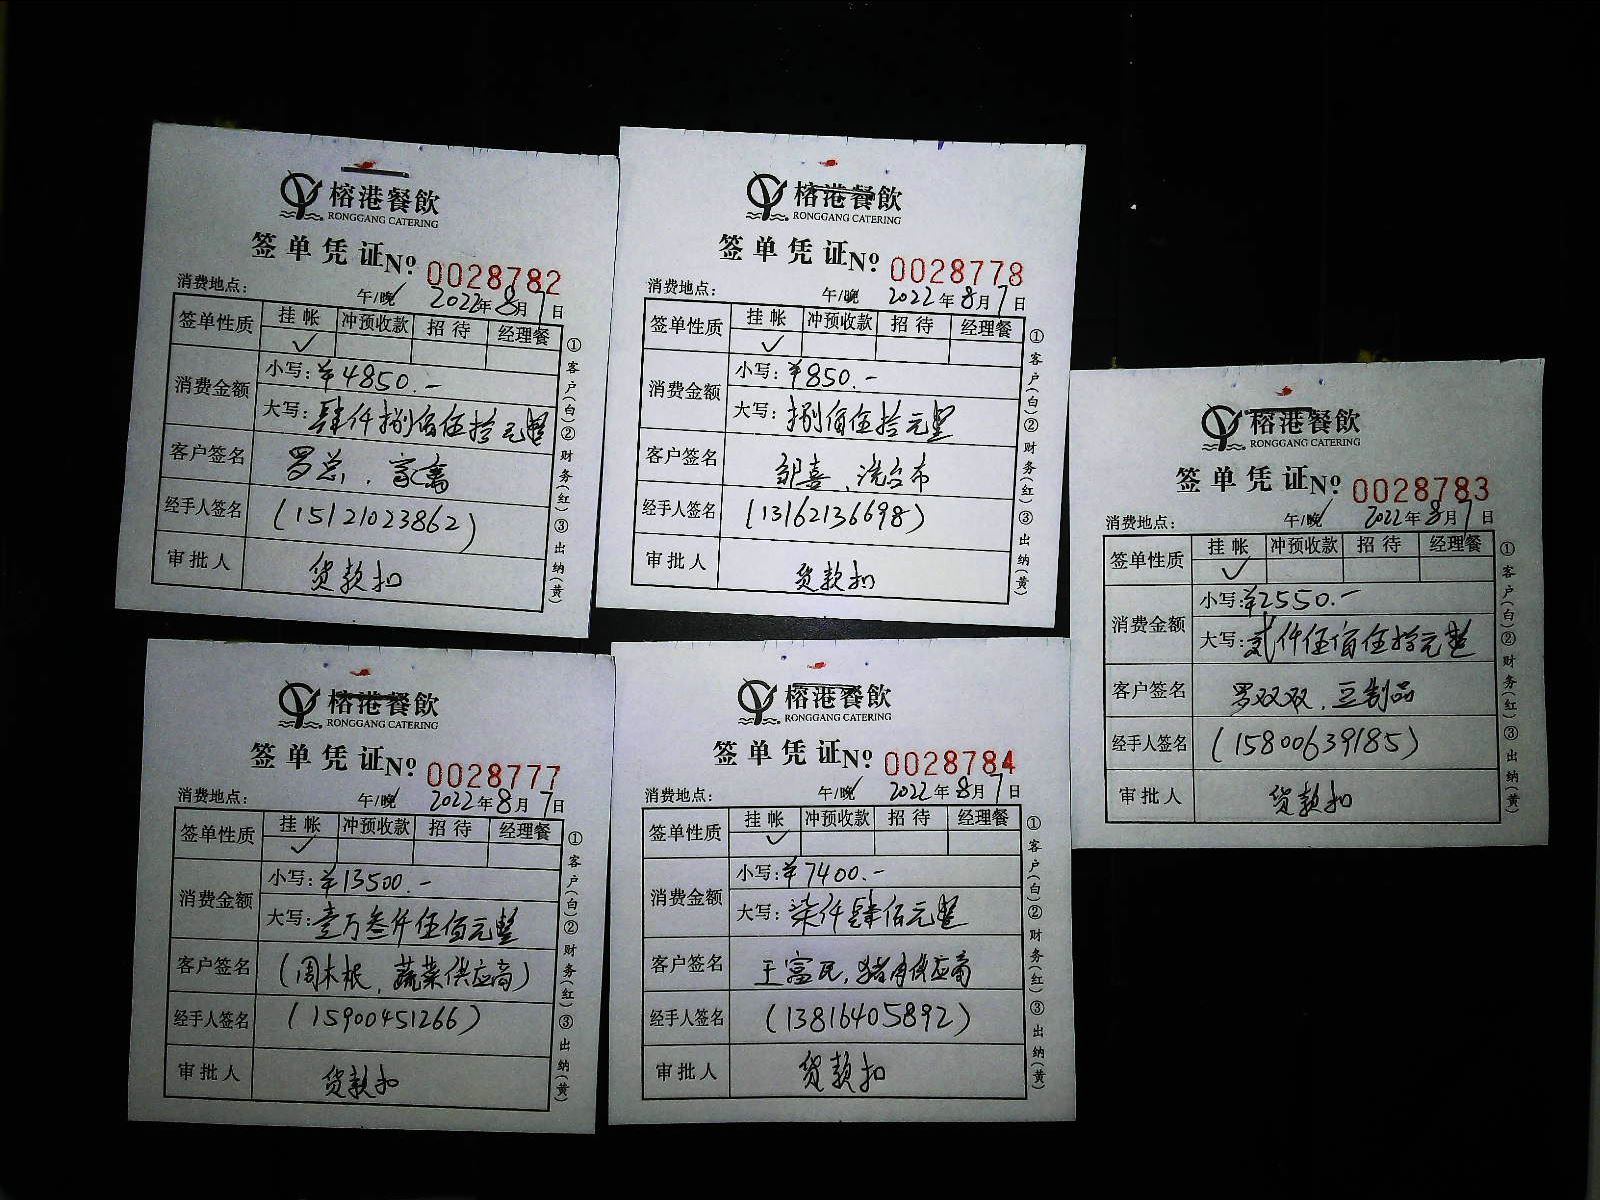 榕港餐飲
RONGGANG CATERING
签单凭证 Nº 0028782
消费地点： 午/晚 2022年8月7日
签单性质 挂帐 冲预收款 招待 经理餐
✓
消费金额 小写：¥4850.-
大写：肆仟捌佰伍拾元整
客户签名 罗总，家禽
经手人签名 (15121023862)
审批人 货款扣
①客户(白)②财务(红)③出纳(黄)
榕港餐飲
RONGGANG CATERING
签单凭证 Nº 0028778
消费地点： 午/晚 2022年8月7日
签单性质 挂帐 冲预收款 招待 经理餐
✓
消费金额 小写：¥850.-
大写：捌佰伍拾元整
客户签名 邹喜、洗台布
经手人签名 (13162136698)
审批人 货款扣
①客户(白)②财务(红)③出纳(黄)
榕港餐飲
RONGGANG CATERING
签单凭证 Nº 0028783
消费地点： 午/晚 2022年8月7日
签单性质 挂帐 冲预收款 招待 经理餐
✓
消费金额 小写：¥2550.-
大写：贰仟伍佰伍拾元整
客户签名 罗双双，豆制品
经手人签名 (15800639185)
审批人 货款扣
①客户(白)②财务(红)③出纳(黄)
榕港餐飲
RONGGANG CATERING
签单凭证 Nº 0028777
消费地点： 午/晚 2022年8月7日
签单性质 挂帐 冲预收款 招待 经理餐
✓
消费金额 小写：¥13500.-
大写：壹万叁仟伍佰元整
客户签名 (周木根，蔬菜供应商)
经手人签名 (15900451266)
审批人 货款扣
①客户(白)②财务(红)③出纳(黄)
榕港餐飲
RONGGANG CATERING
签单凭证 Nº 0028784
消费地点： 午/晚 2022年8月7日
签单性质 挂帐 冲预收款 招待 经理餐
✓
消费金额 小写：¥7400.-
大写：柒仟肆佰元整
客户签名 王富民，猪肉供应商
经手人签名 (13816405892)
审批人 货款扣
①客户(白)②财务(红)③出纳(黄)